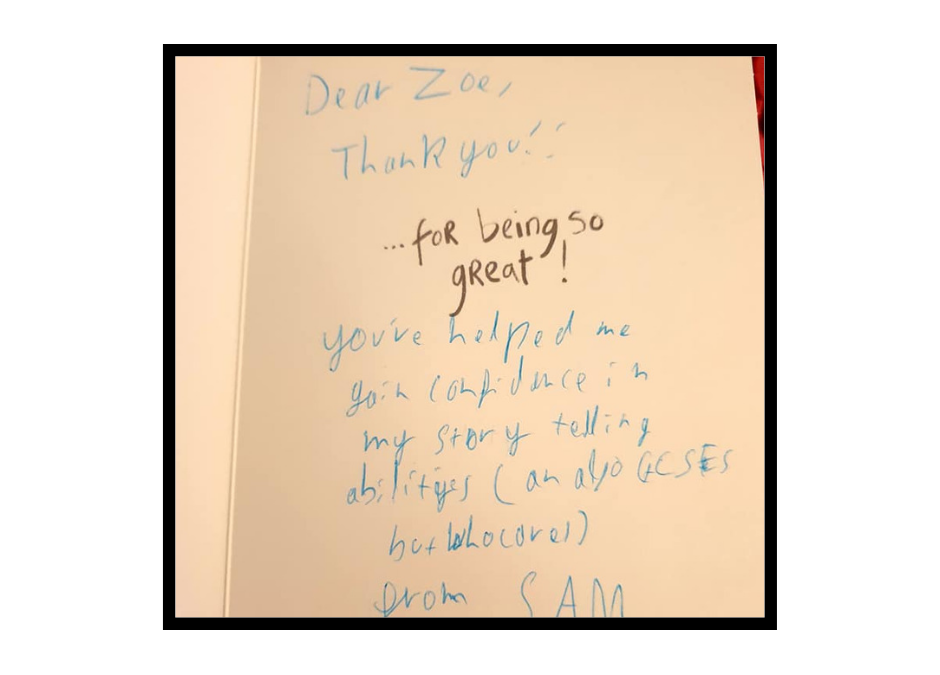 Dear Zoe,
Thank you!!
...for being so
great!
you've helped me
gain confidance in
my story telling
abilityes (an also GCSES
but who cares)
from SAM